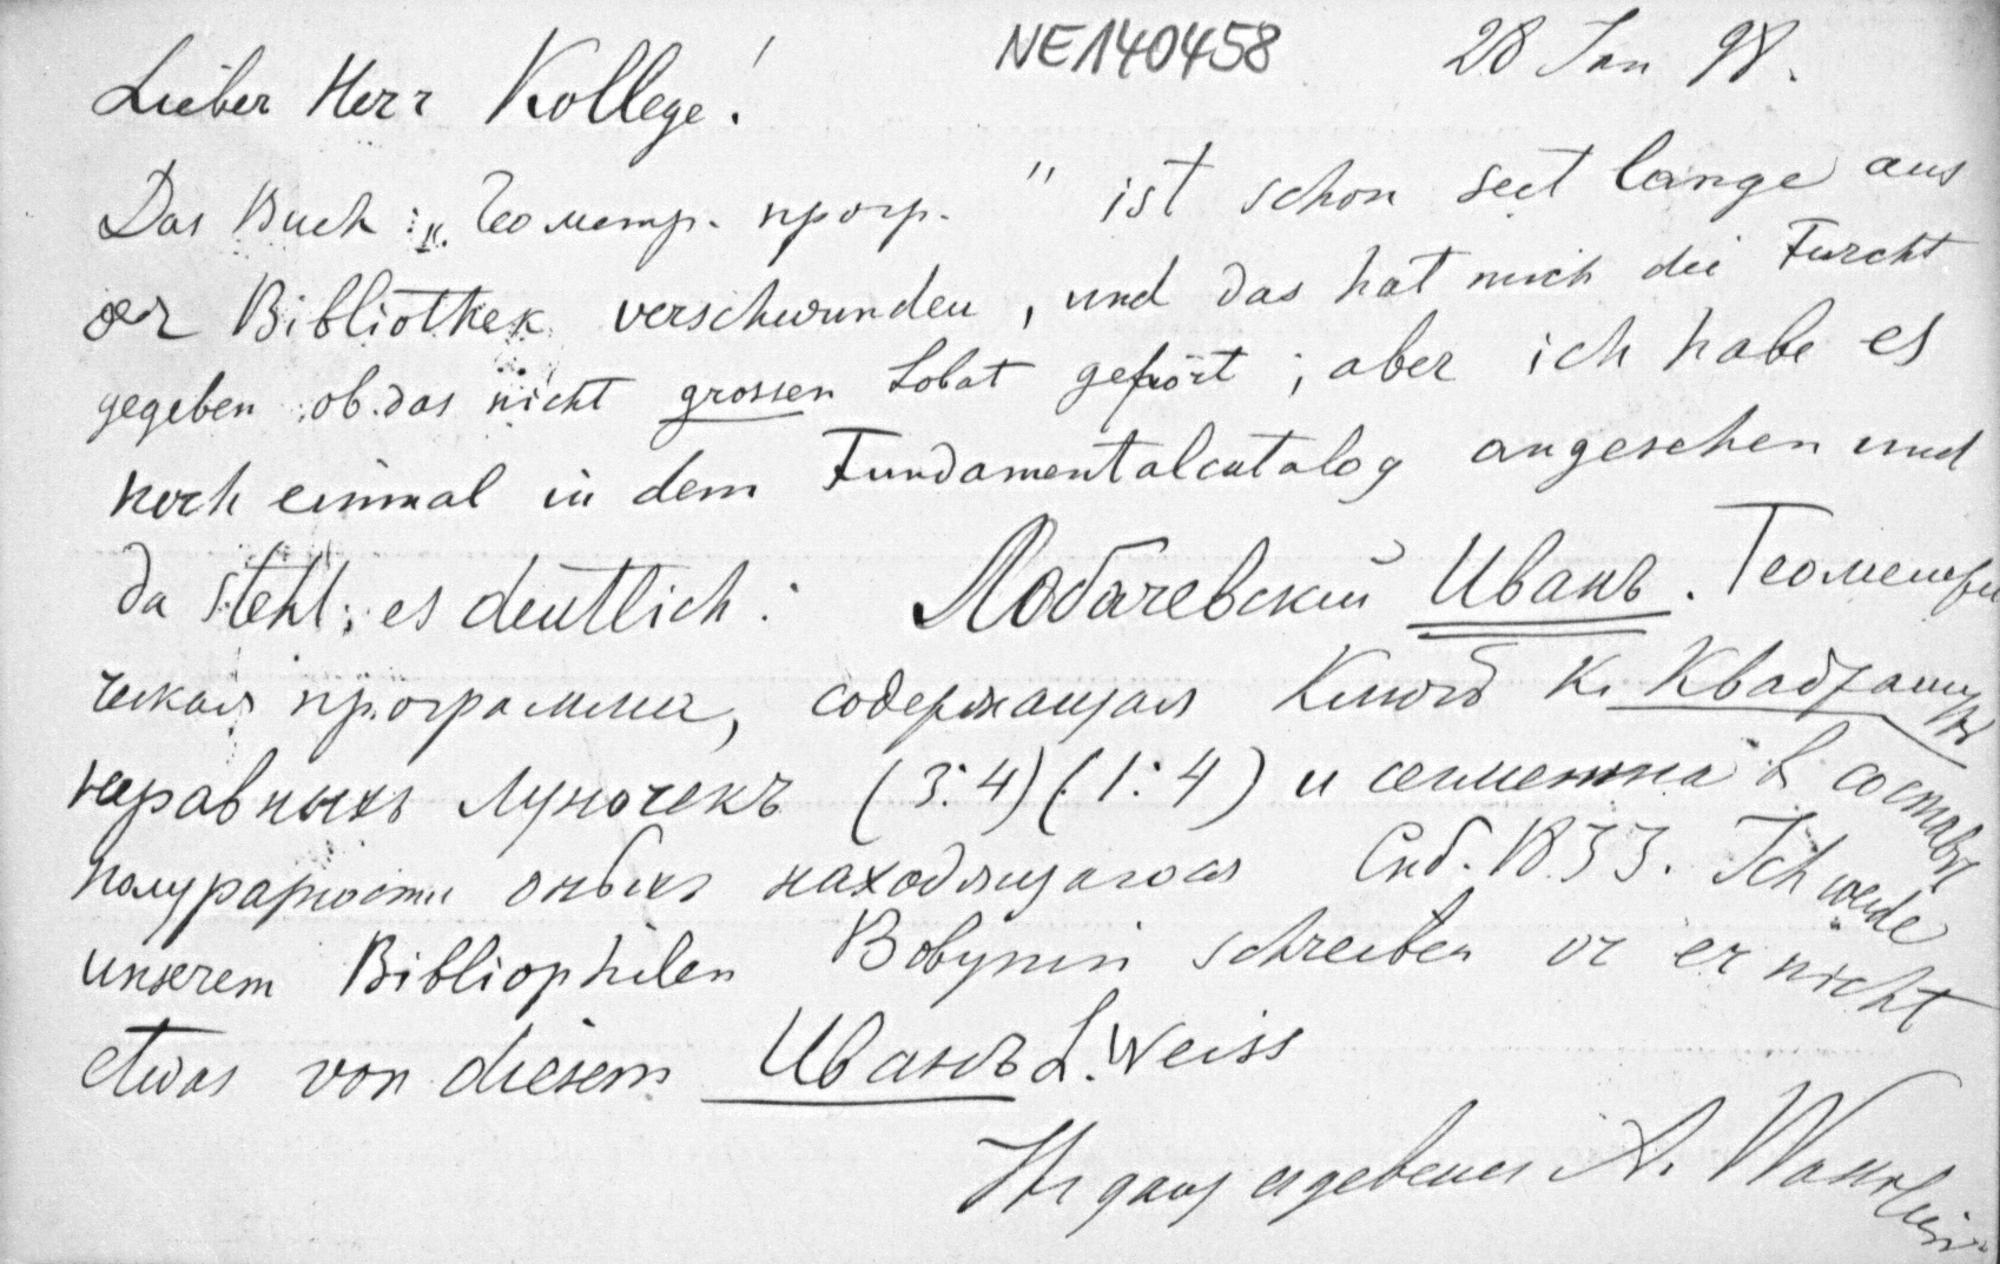 NE140458 28 Jan 98.
Lieber Herr Kollege!
Das Buch: „Геометр. прогр. " ist schon seit lange aus
der Bibliothek verschwunden, und das hat mich die Furcht
gegeben ob das nicht grossen Lobat gehört; aber ich habe es
noch einmal in dem Fundamentalcatalog angesehen und
da steht es deutlich: Лобачевский Иванъ. Геометри
ческая программа, содержащая ключъ къ квадратурѣ
неравныхъ луночекъ (3:4) (1:4) и сегмента въ составѣ
полуразности оныхъ находящагося Спб. 1833. Ich werde
unserem Bibliophilen Bobynin schreiben or er nicht
etwas von diesem Иванъ L. weiss
Ihr ganz ergebener A. Wassiliev